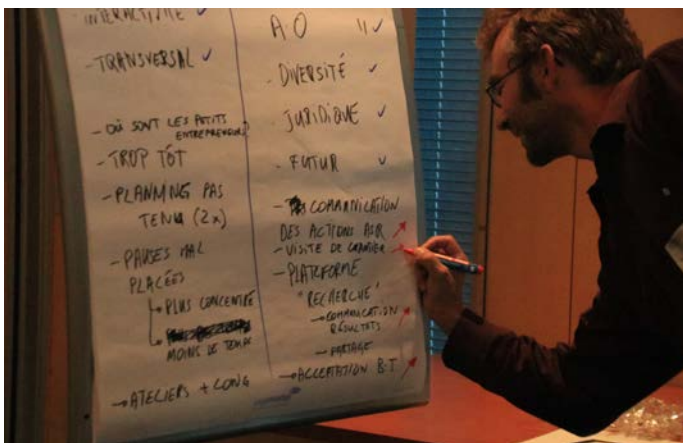 INTERACTIVITÉ ✓
- TRANSVERSAL ✓
- OÙ SONT LES PETITS
ENTREPRENEURS?
- TROP TÔT
- PLANNING PAS
TENU (2x)
- PAUSES MAL
PLACÉES
↳ PLUS CONCENTRÉ
↳
MOINS DE TEMPS
→ ATELIERS + LONG
AO 11 ✓
- DIVERSITÉ ✓
- JURIDIQUE ✓
- FUTUR ✓
- COMMUNICATION
DES ACTIONS
- VISITE DE CHANTIER
- PLATEFORME
"RECHERCHE"
→ COMMUNICATION
RÉSULTATS
→ PARTAGE
→ ACCEPTATION B.T